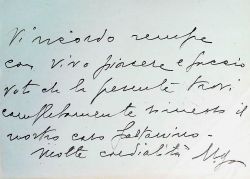 Vi ricordo sempre
con vivo piacere e faccio
voti che la presente trovi
completamente rimesso il
nostro caro
molte cordialità